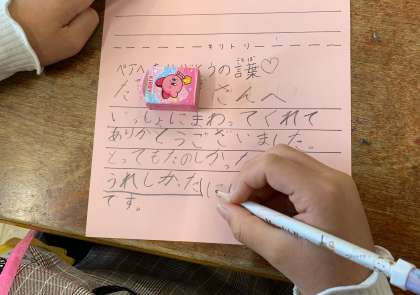 キリトリ
ペアへありがとうの言葉♡
さんへ
いっしょにまわってくれて
ありがとうございました。
とってもたのしかった
うれしかった
です。